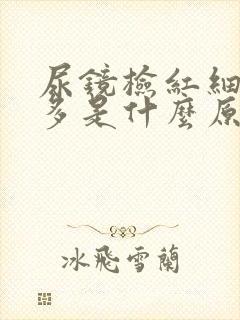 尿鏡檢紅細
多是什麼原
冰飛雪蘭